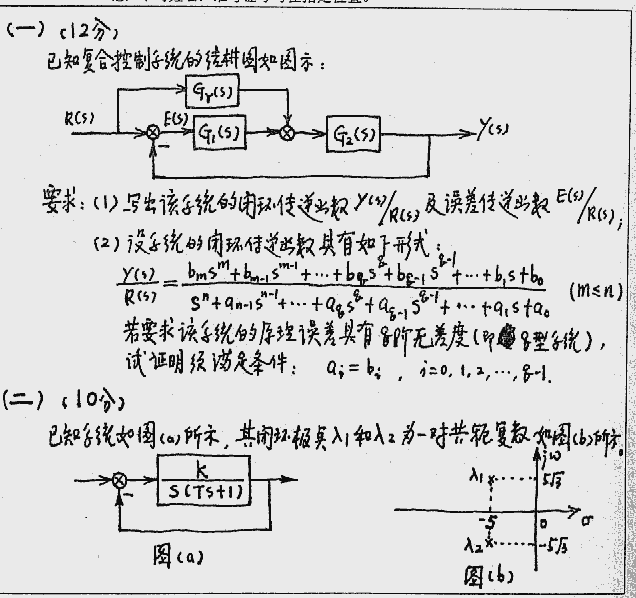 (一)(12分)
已知复合控制系统的结构图如图示：
Gr(s)
R(s)
E(s)
G1(s)
G2(s)
Y(s)
−
要求：(1) 写出该系统的闭环传递函数 Y(s)/R(s) 及误差传递函数 E(s)/R(s)；
(2) 设系统的闭环传递函数具有如下形式：
Y(s)/R(s) = (bm s^m + bm-1 s^m-1 + ··· + bq s^q + bq-1 s^q-1 + ··· + b1 s + b0) / (s^n + an-1 s^n-1 + ··· + aq s^q + aq-1 s^q-1 + ··· + a1 s + a0) (m≤n)
若要求该系统的原理误差具有q阶无差度(即q型系统)，
试证明须满足条件： ai = bi , i=0, 1, 2, ···, q-1.
(二)(10分)
已知系统如图(a)所示，其闭环极点λ1和λ2为一对共轭复数如图(b)所示。
K
S(TS+1)
−
图(a)
jω
λ1
5√3
-5
0
σ
λ2
-5√3
图(b)